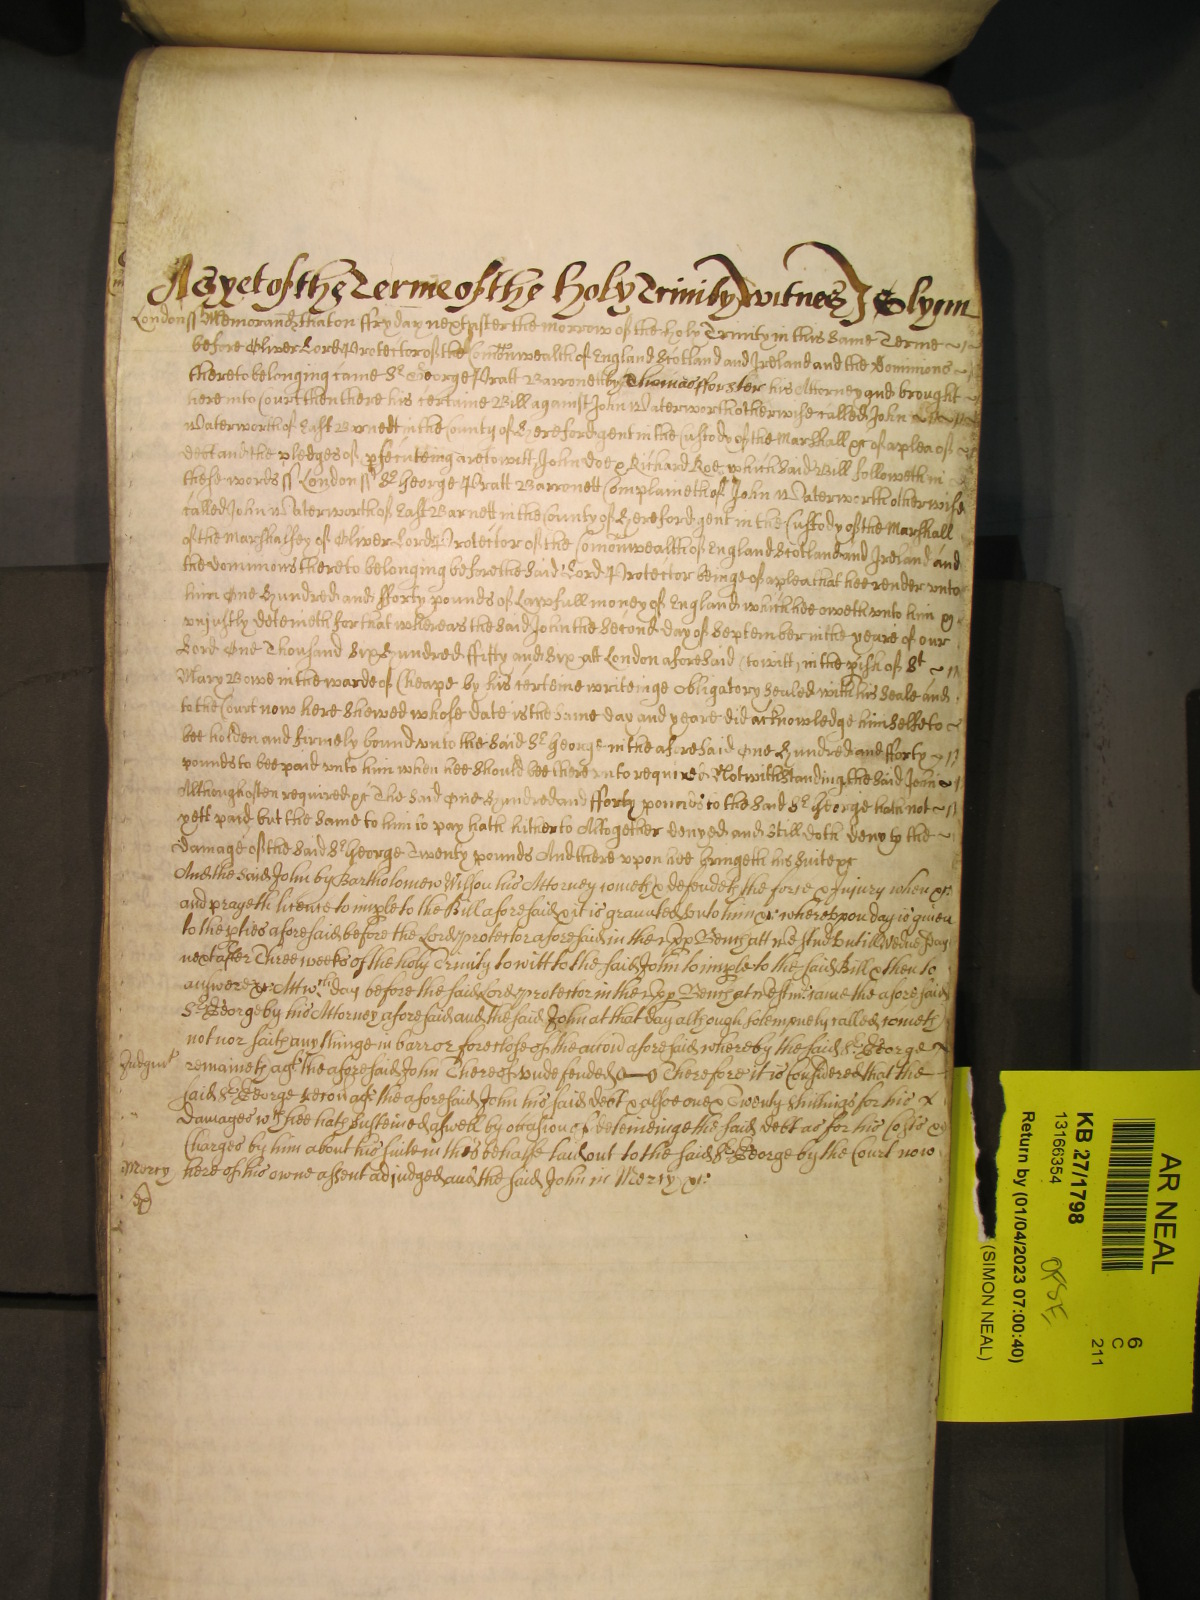 As yet of the Terme of the holy Trinity witnes J Glynn
London ss Memorand that on ffryday next after the morrow of the holy Trinity in this same Terme
before Oliver Lord Protector of the Comonwealth of England Scotland and Ireland and the Dominions
thereto belonging came Sr George Pratt Barronett by Thomas fforster his Attorney and brought
here into Court then there his certaine Bill against John Waterworth otherwise called John
Waterworth of East Barnett in the County of Hereford gent in the Custody of the Marshall &c of a plea of
debt and the pledges of psecuteing are to witt John doe & Richard Roe which said Bill followeth in
these words ss London ss Sr George Pratt Barronett Complaineth of John Waterworth otherwise
called John Waterworth of East Barnett in the County of Hereford gent in the Custody of the Marshall
of the Marshalsey of Oliver Lord Protector of the Comonwealth of England Scotland and Ireland and
the dominions thereto belonging before the said Lord Protector beinge of a plea that hee render unto
him One Hundred and fforty pounds of Lawfull money of England which hee oweth unto him &
unjustly deteineth for that whereas the said John the Second day of September in the yeare of our
Lord One Thousand Six Hundred ffifty and Six att London aforesaid to witt in the pish of St
Mary Bowe in the warde of Cheape by his certeine writeinge obligatory sealed with his seale and
to the Court now here shewed whose date is the same day and yeare did acknowledge himselfe to
bee holden and firmely bound unto the said Sr George in the aforesaid One Hundred and fforty
pounds to bee paid unto him when hee should bee thereunto required Notwithstanding the said John
Although often required &c The said One Hundred and fforty pounds to the said Sr George hath not
yett paid but the same to him to pay hath hitherto Altogether denyed and still doth deny to the
damage of the said Sr George Twenty pounds And thereupon hee bringeth his suite &c
And the said John by Bartholomew Wilson his Attorney cometh & defendeth the force & Injury when &c
and prayeth licence to imple to the Bill aforesaid & it is graunted unto him &c whereupon day is given
to the pties aforesaid before the Lord protector aforesaid in the upp Bench att untill day
next after Three weeks of the holy Trinity to witt to the said John to imple to the said Bill & then to
answere &c Att wch day before the said Lord protector in the upp Bench at Westmr came the aforesaid
Sr George by his Attorney aforesaid and the said John at that day although solempnely called cometh
not nor saith any thinge in barr or foreclose of the accon aforesaid whereby the said Sr George
Judgmt remaineth agt the aforesaid John Thereof undefended Therefore it is Considered that the
said Sr George recov agt the aforesaid John his said debt & alsoe Twenty Shillings for his
damages wch hee hath susteined aswell by occasion of deteineinge the said debt as for his Costs &
Charges by him about his suite in this behalfe laid out to the said Sr George by the Court now
Mercy here of his owne assent adjudged and the said John in Mercy &c
AR NEAL
6
C
211
KB 27/1798
13166354
Return by (01/04/2023 07:00:40)
(SIMON NEAL)